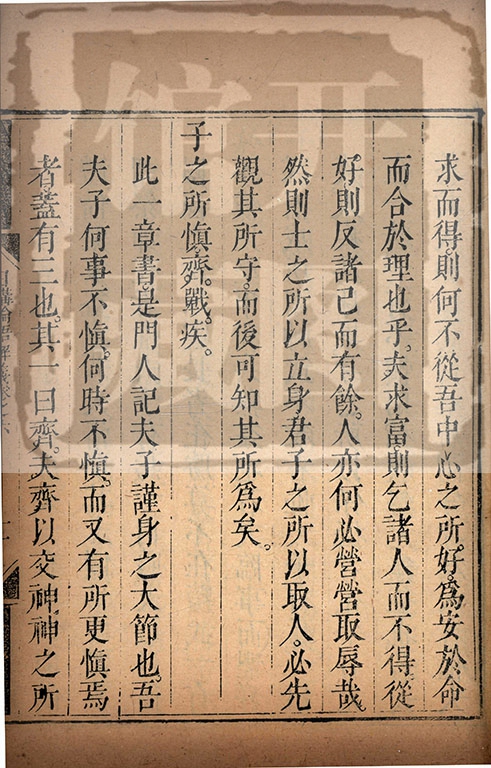 求而得則何不從吾中心之所好。爲安於命
而合於理也乎。夫求富則乞諸人而不得從
好則反諸己而有餘。人亦何必營營取辱哉。
然則士之所以立身君子之所以取人。必先
觀其所守。而後可知其所爲矣。
子之所愼齊。戰。疾。
此一章書。是門人記夫子謹身之大節也。吾
夫子何事不愼。何時不愼。而又有所更愼焉
者。葢有三也。其一曰齊。夫齊以交神。神之所
日講論語解義卷之六